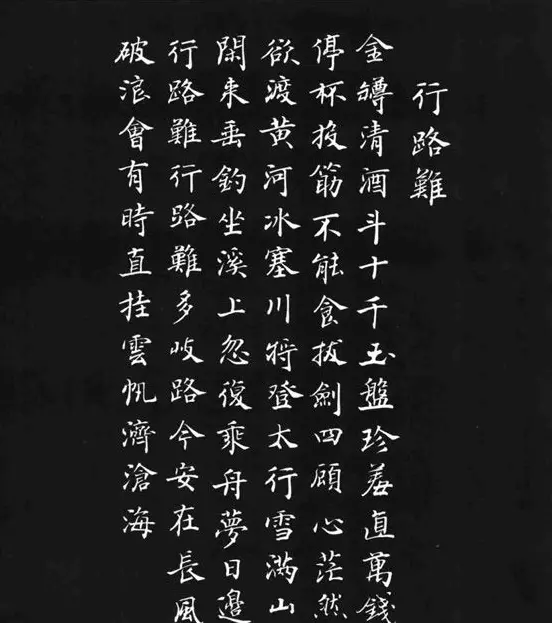 行路難
金罇清酒斗十千玉盤珍羞直萬錢
停杯投筯不能食拔劍四顧心茫然
欲渡黃河冰塞川將登太行雪滿山
閑来垂釣坐溪上忽復乘舟夢日邊
行路難行路難多岐路今安在長風
破浪會有時直挂雲帆濟滄海